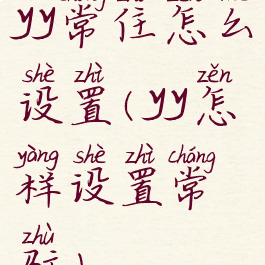 yy常住怎么
shè zhì zěn
设置(yy怎
yàng shè zhì cháng
样设置常
zhù